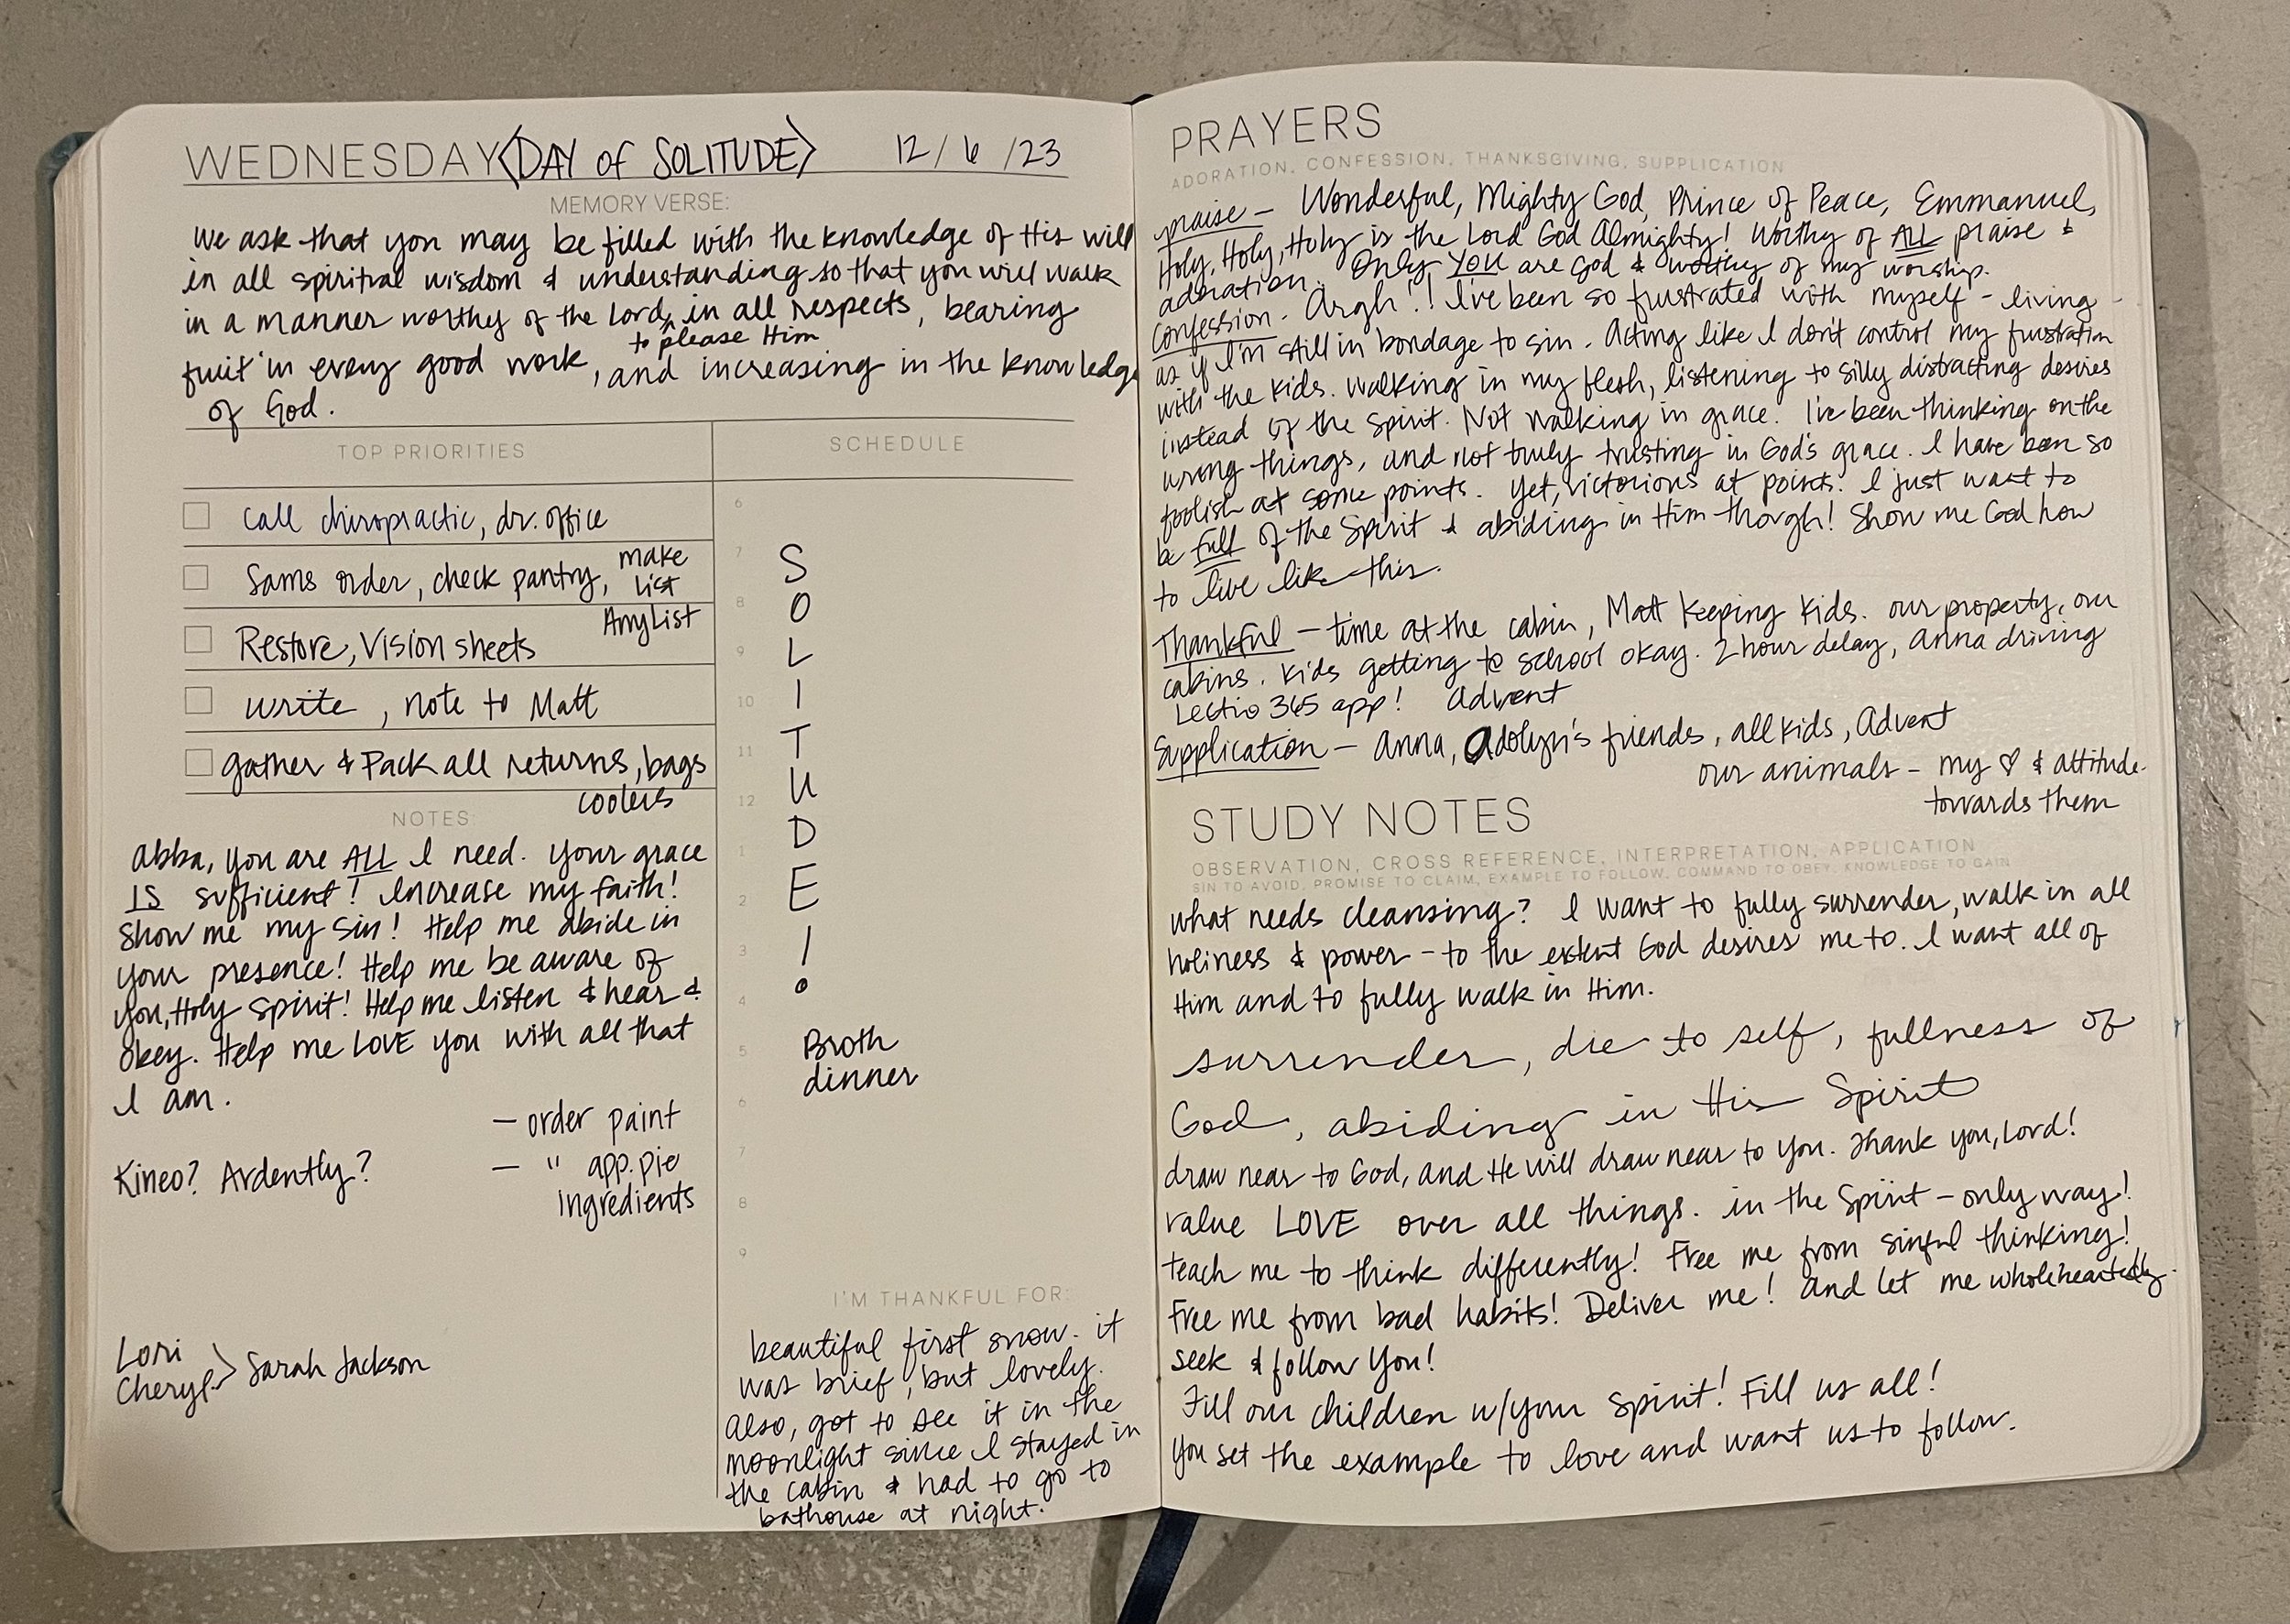 WEDNESDAY <DAY of SOLITUDE> 12/6/23
MEMORY VERSE:
We ask that you may be filled with the knowledge of His will
in all spiritual wisdom & understanding so that you will walk
in a manner worthy of the Lord, in all respects, bearing
to please Him
fruit in every good work, and increasing in the knowledge
of God.
TOP PRIORITIES
call chiropractic, dr. office
Sams order, check pantry, make
list
AnyList
Restore, Vision sheets
write, note to Matt
gather & Pack all returns, bags
coolers
NOTES
Abba, you are ALL I need. Your grace
IS sufficient! Increase my faith!
Show me my sin! Help me abide in
your presence! Help me be aware of
you, Holy Spirit! Help me listen & hear &
obey. Help me LOVE you with all that
I am.
- order paint
Kineo? Ardently?
- " app. pie
ingredients
Lori
Cheryl > Sarah Jackson
SCHEDULE
6
7
S
8
O
9
L
10
I
11
T
12
U
1
D
2
E
3
!
4
5
Broth
dinner
6
7
8
9
I'M THANKFUL FOR:
beautiful first snow. it
was brief, but lovely.
Also, got to see it in the
moonlight since I stayed in
the cabin & had to go to
bathouse at night.
PRAYERS
ADORATION, CONFESSION, THANKSGIVING, SUPPLICATION
praise - Wonderful, Mighty God, Prince of Peace, Emmanuel,
Holy, Holy, Holy is the Lord God Almighty! Worthy of ALL praise &
adoration. Only YOU are God & worthy of my worship.
Confession. Argh!! I've been so frustrated with myself - living
as if I'm still in bondage to sin. Acting like I don't control my frustration
with the kids. Walking in my flesh, listening to silly distracting desires
instead of the Spirit. Not walking in grace. I've been thinking on the
wrong things, and not truly trusting in God's grace. I have been so
foolish at some points. Yet, victorious at points. I just want to
be full of the Spirit & abiding in Him though! Show me God how
to live like this.
Thankful - time at the cabin, Matt keeping kids. our property, our
cabins. kids getting to school okay. 2 hour delay, Anna driving
Lectio 365 app! Advent
Supplication - Anna, Adolyn's friends, all kids, Advent
our animals - my ♡ & attitude
towards them
STUDY NOTES
OBSERVATION, CROSS REFERENCE, INTERPRETATION, APPLICATION
SIN TO AVOID, PROMISE TO CLAIM, EXAMPLE TO FOLLOW, COMMAND TO OBEY, KNOWLEDGE TO GAIN
what needs cleansing? I want to fully surrender, walk in all
holiness & power - to the extent God desires me to. I want all of
Him and to fully walk in Him.
surrender, die to self, fullness of
God, abiding in His Spirit
draw near to God, and He will draw near to you. Thank you, Lord!
value LOVE over all things. in the Spirit - only way!
teach me to think differently! Free me from sinful thinking!
Free me from bad habits! Deliver me! And let me wholeheartedly
seek & follow You!
Fill our children w/your Spirit! Fill us all!
You set the example to love and want us to follow.